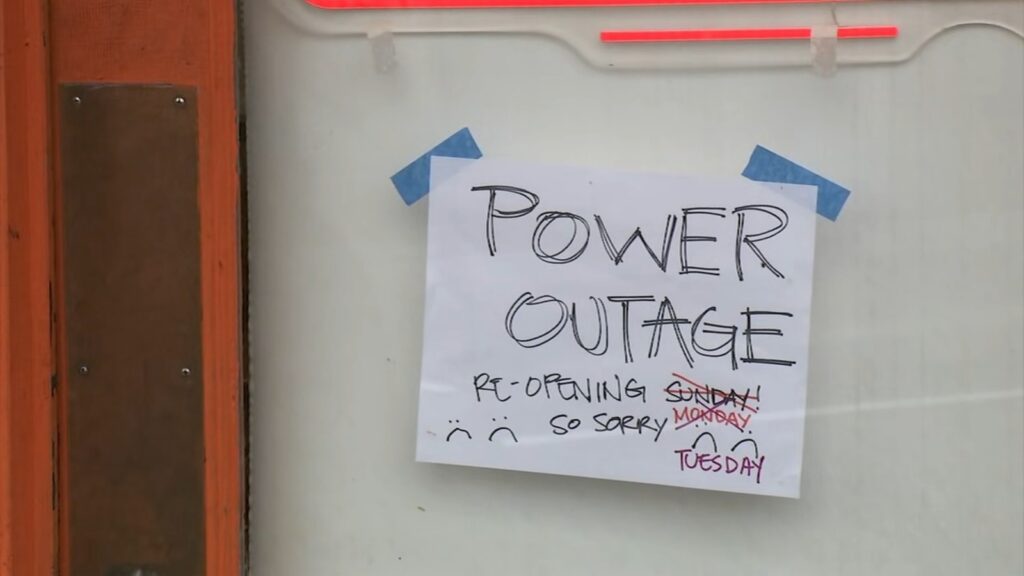 POWER
OUTAGE
RE-OPENING SUNDAY!
MONDAY
SO SORRY
TUESDAY